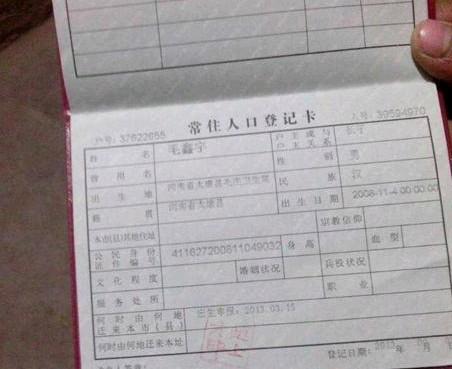 常住人口登记卡
户号: 37622655
人号: 39594970
姓 名 毛鑫宇 户主或与户主关系 长子
曾用名 性别 男
出生地 河南省太康县毛庄卫生院 民族 汉
籍贯 河南省太康县 出生日期 2008-11-4 00:00:00
本市(县)其他住址 宗教信仰
公民身份证件编号 411627200811049032 身高 血型
文化程度 婚姻状况 兵役状况
服务处所 职业
何时由何地迁来本市(县) 出生申报: 2013.03.15
何时由何地迁来本址
登记日期: 2013 年 月